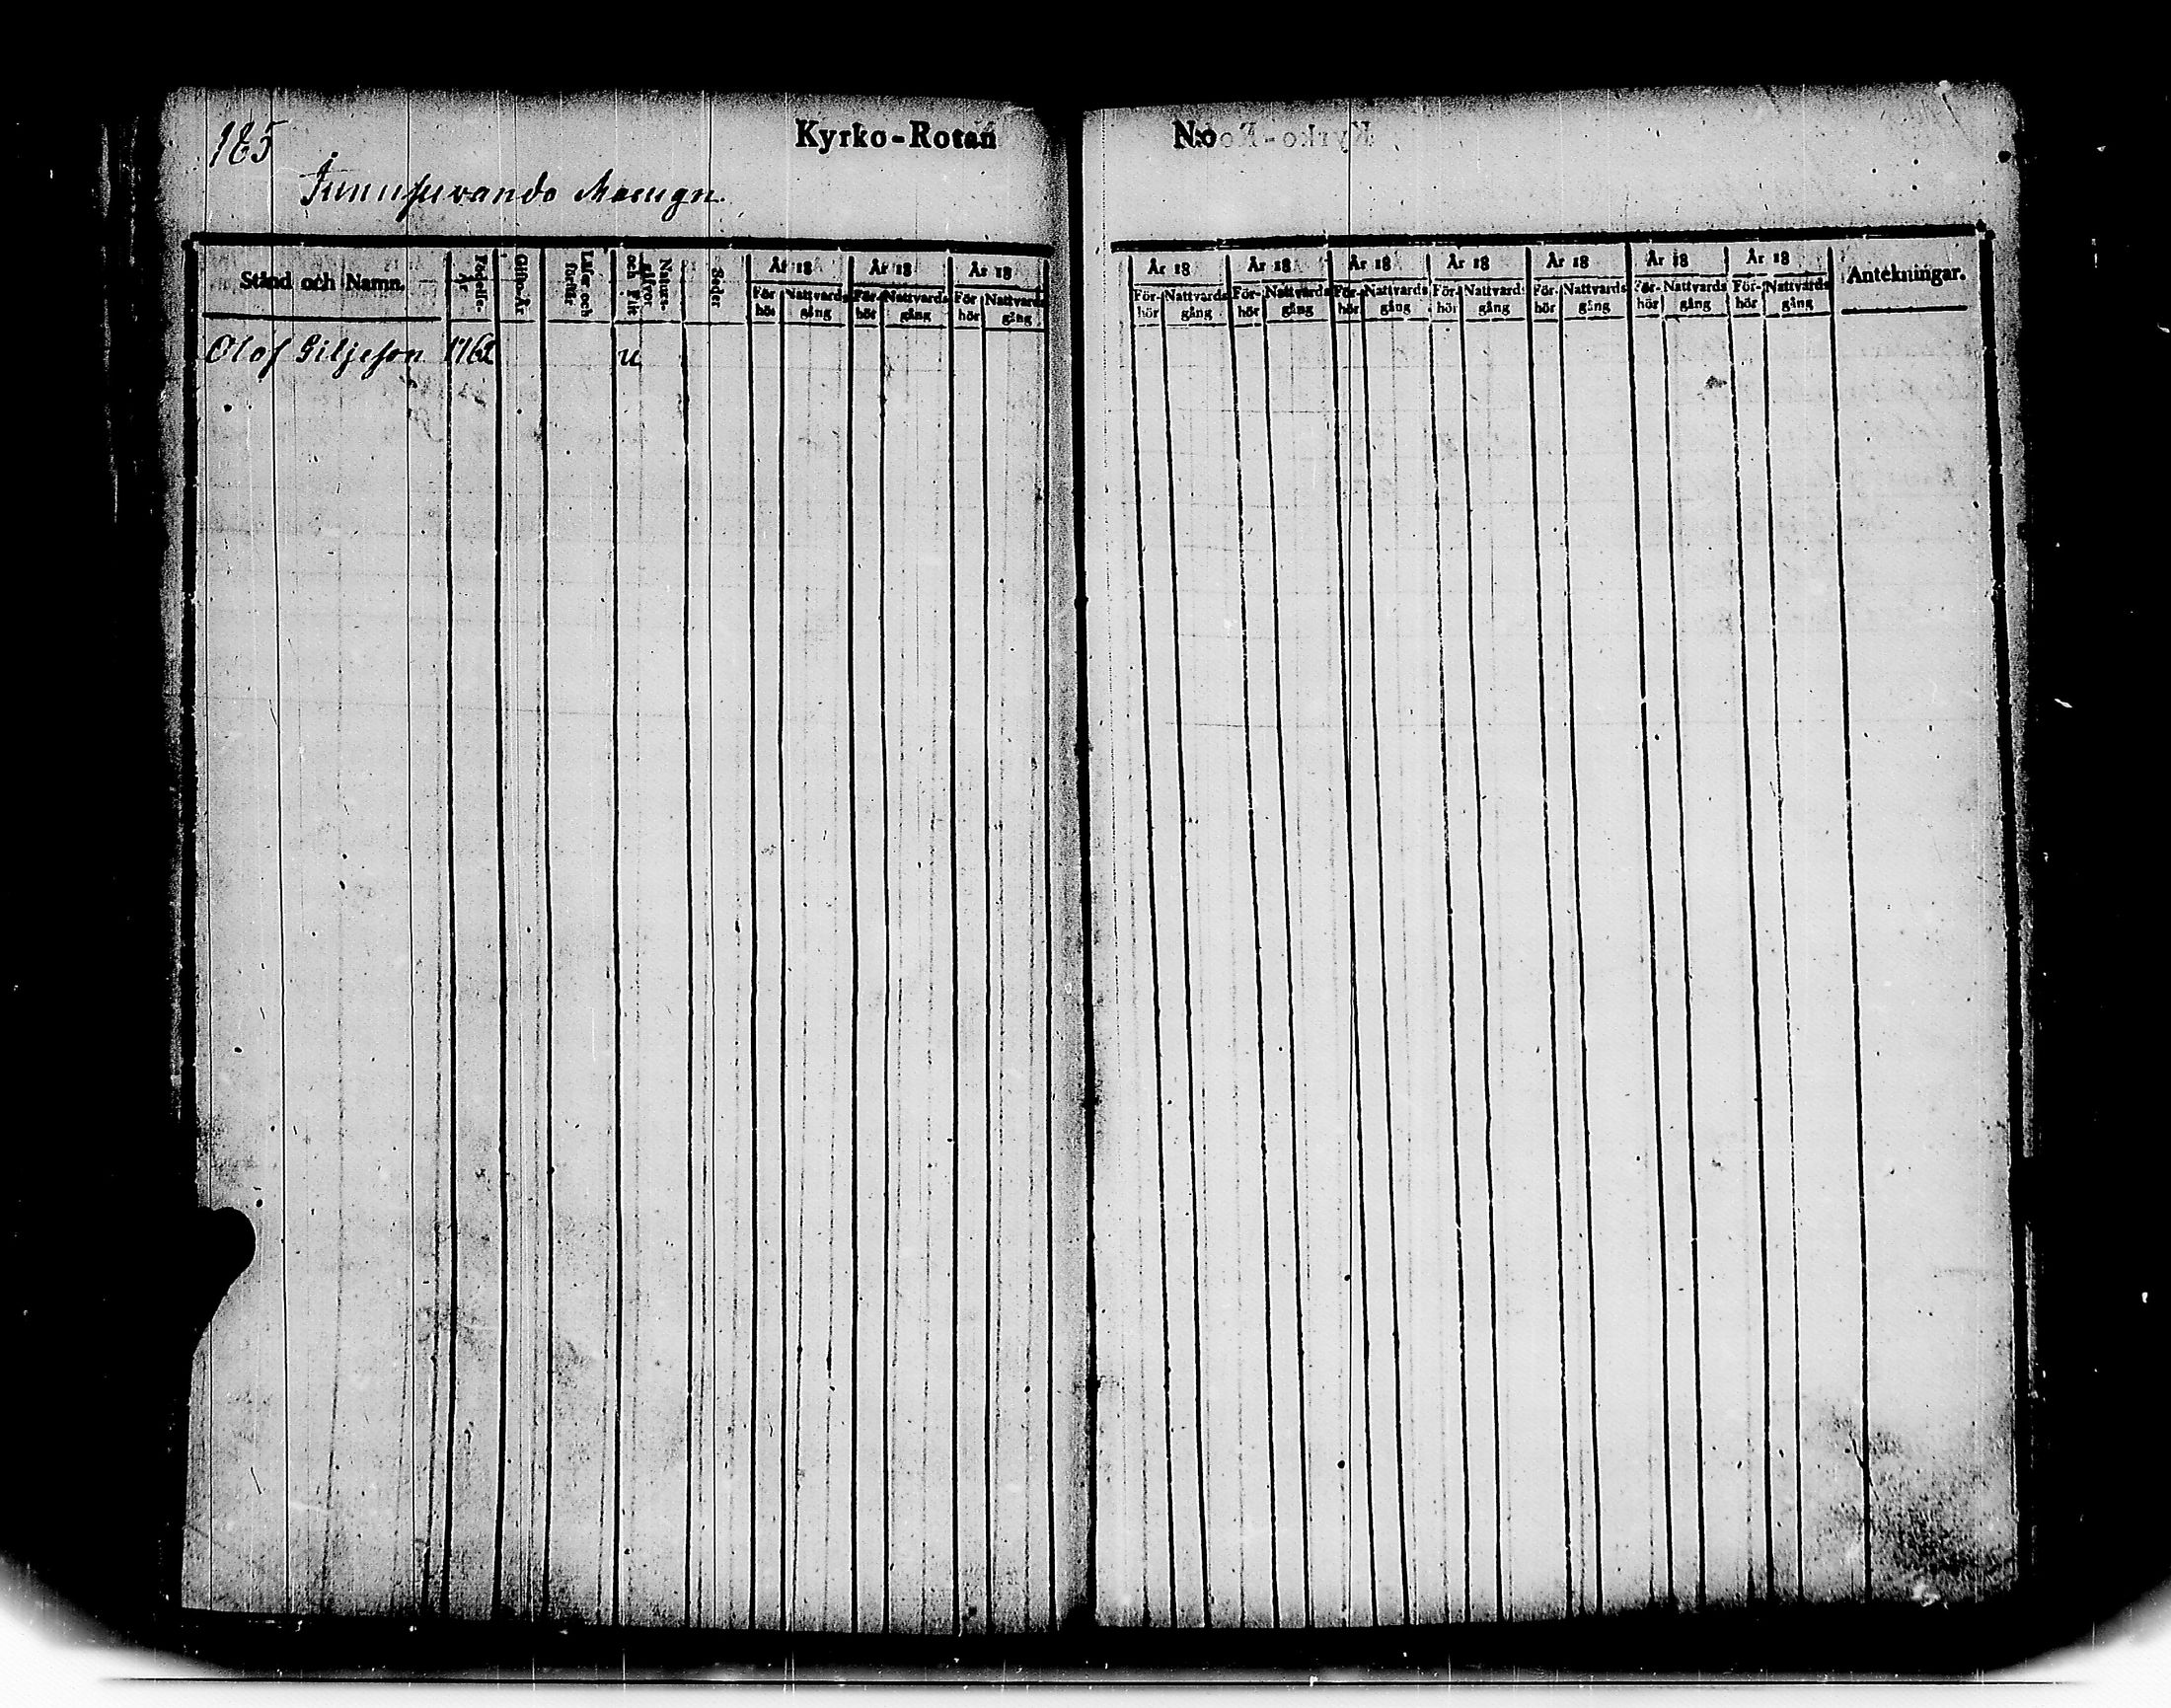 185
Kyrko-Rotan N:o
Junusuvando Masugn.
Stånd och Namn. Födelse-År Gifto-År Läse och förstår Natursgåfvor och Flit Seder År 18 År 18 År 18 År 18 År 18 År 18 År 18 År 18 År 18 År 18 Antekningar.
För-hör Nattvards gång För-hör Nattvards gång För-hör Nattvards gång För-hör Nattvards gång För-hör Nattvards gång För-hör Nattvards gång För-hör Nattvards gång För-hör Nattvards gång För-hör Nattvards gång För-hör Nattvards gång
Olof Siljeson 1762 u